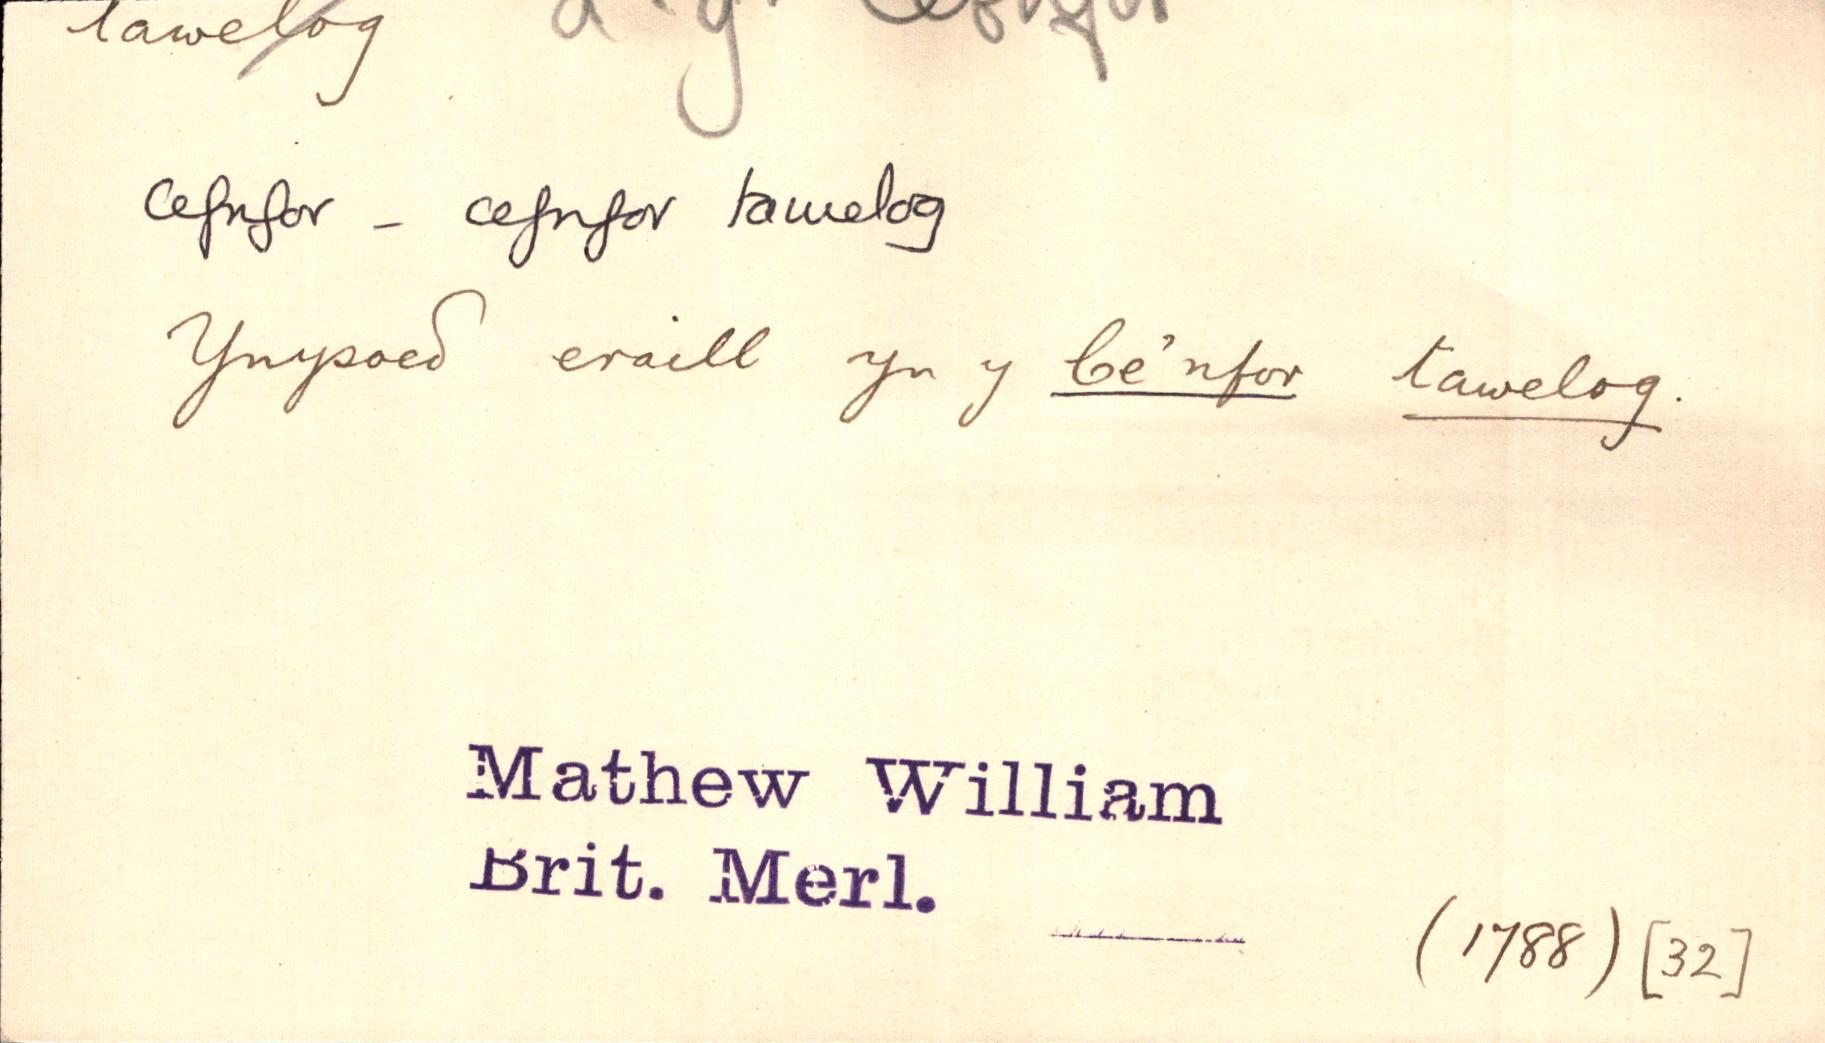 tawelog d.g. cefnfor
cefnfor - cefnfor tawelog
Ynysoed eraill yn y Ce'nfor tawelog.
Mathew William
Brit. Merl.
(1788) [32]